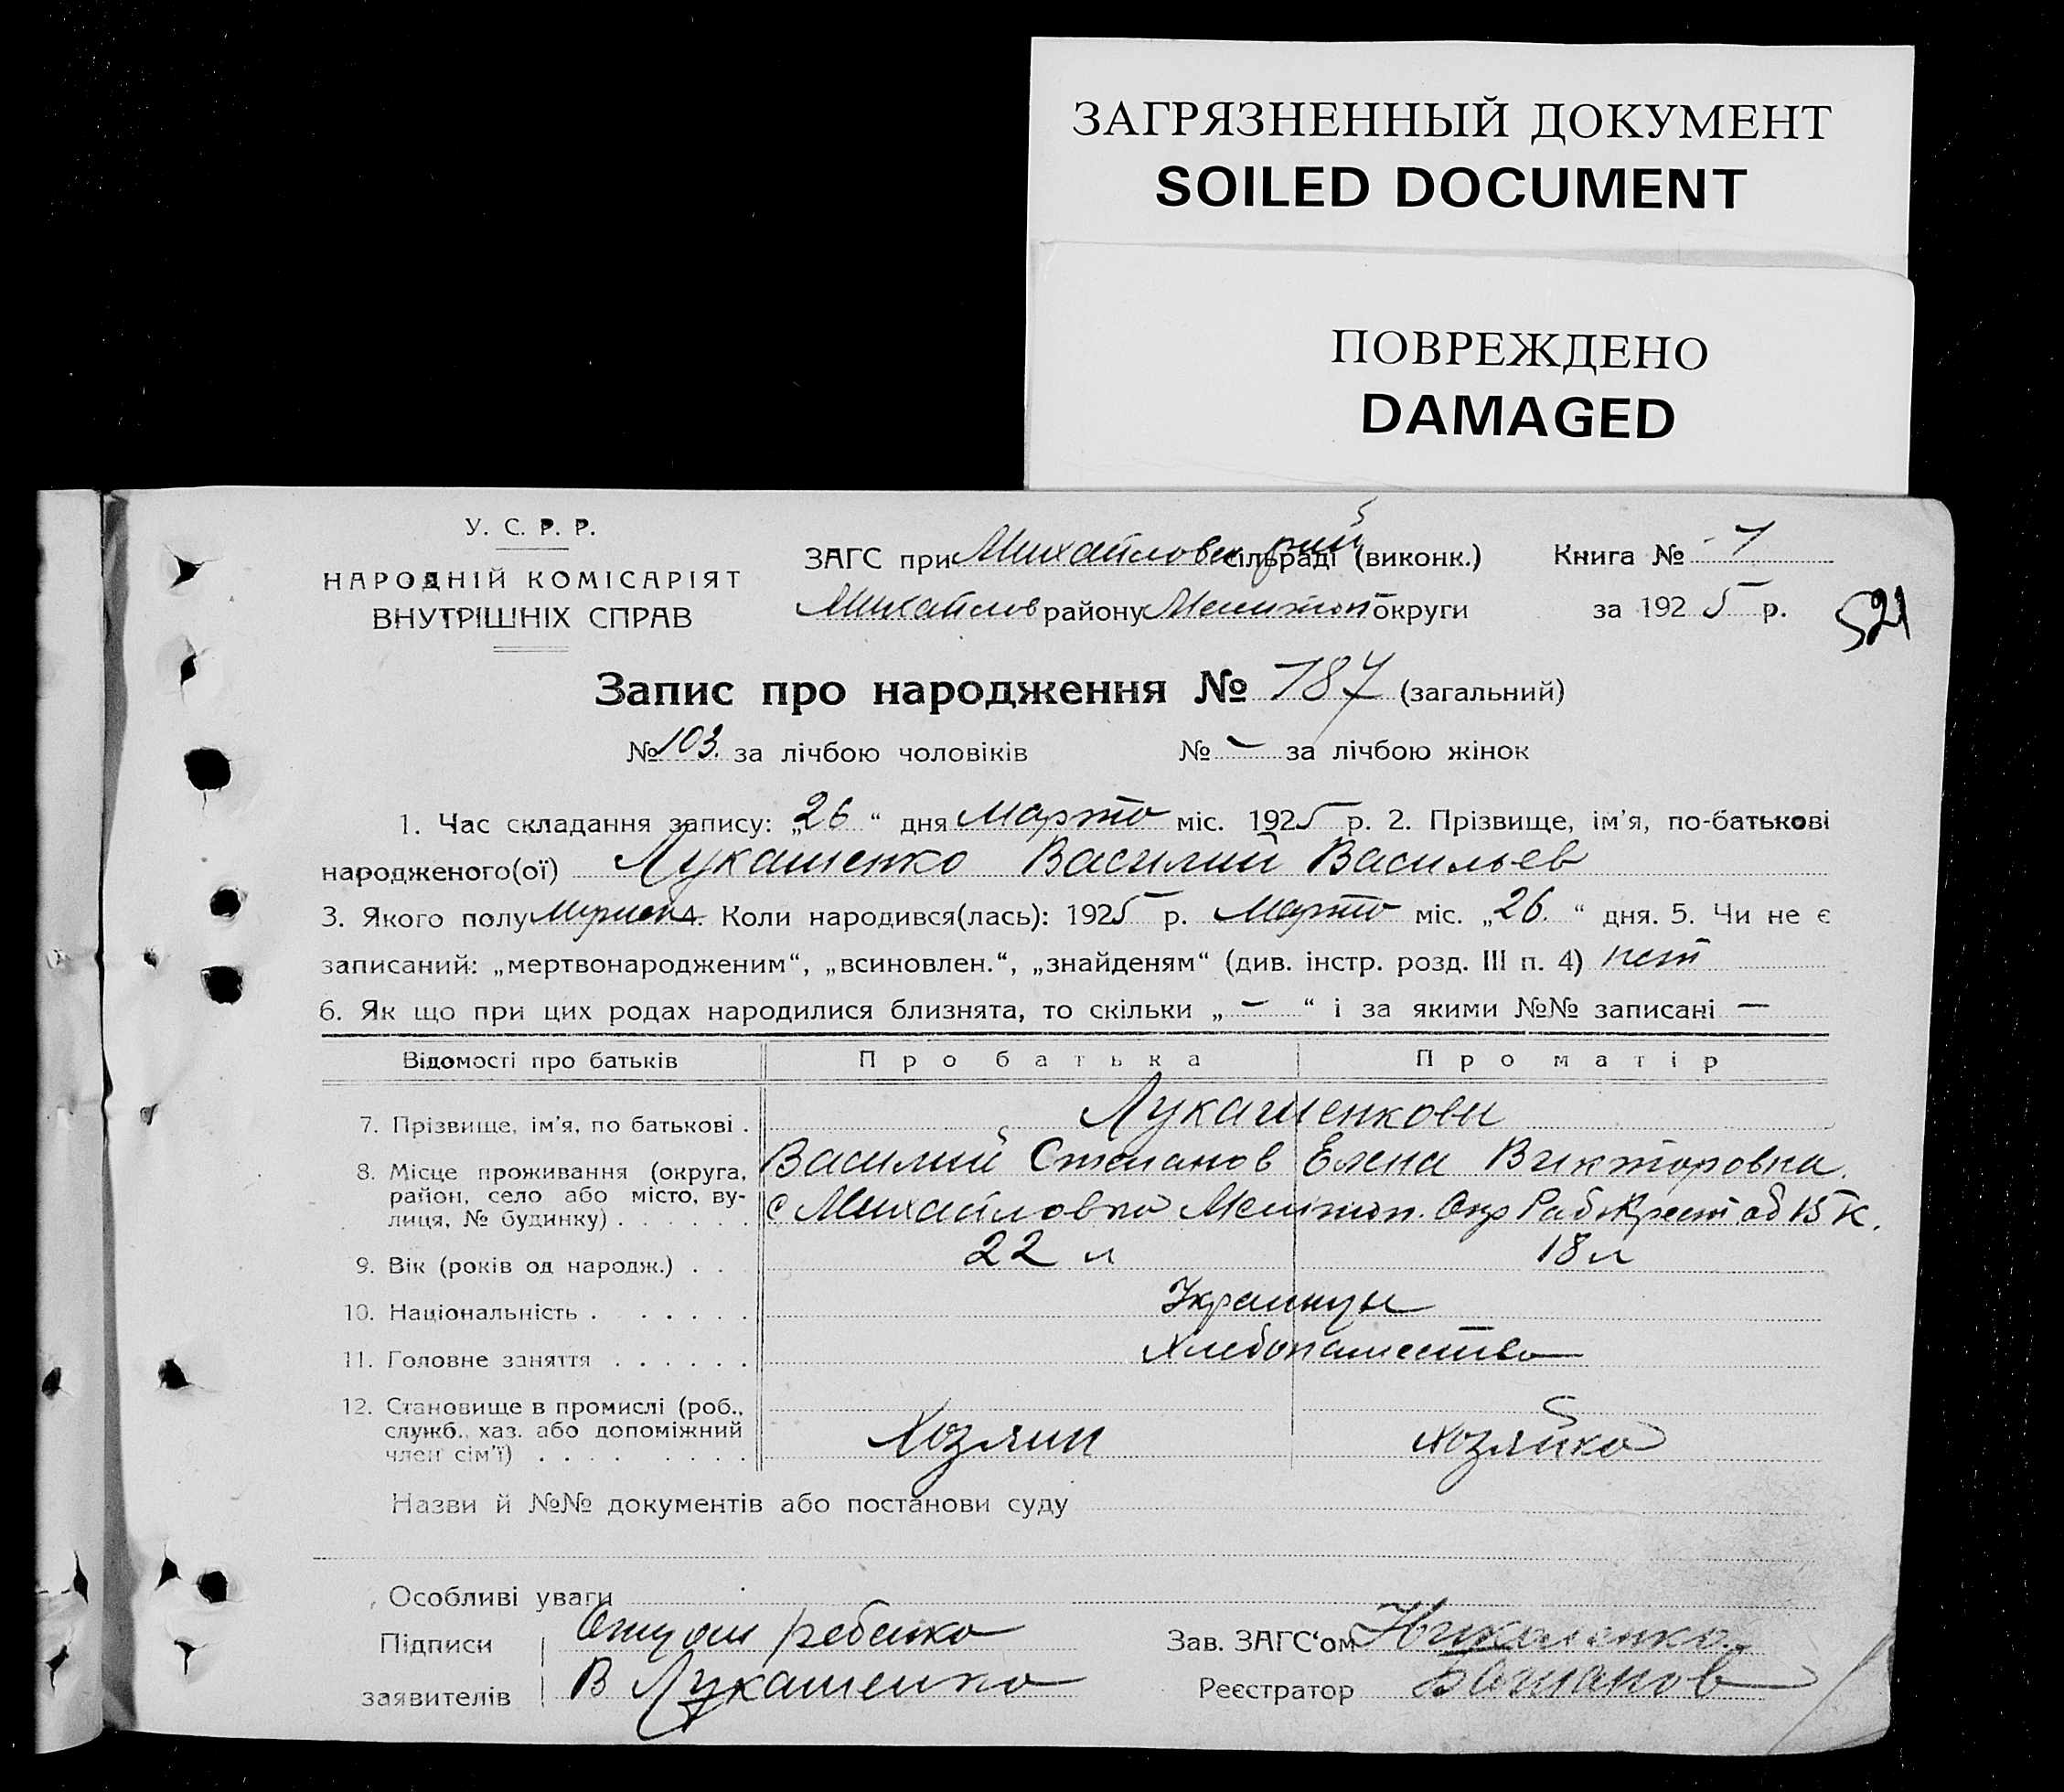 ЗАГРЯЗНЕННЫЙ ДОКУМЕНТ
SOILED DOCUMENT
ПОВРЕЖДЕНО
DAMAGED
У. С. Р. Р.
НАРОДНІЙ КОМІСАРІЯТ
ВНУТРІШНІХ СПРАВ
ЗАГС при Михайловск рай сільраді (виконк.)
Михайлов району Мелитоп округи
Книга № 1
за 1925 р.
521
Запис про народження № 187 (загальний)
№ 103. за лічбою чоловіків № – за лічбою жінок
1. Час складання запису: „26“ дня Марта міс. 1925 р. 2. Прізвище, ім'я, по-батькові
народженого(ої) Лукашенко Василий Васильев
3. Якого полу мужск 4. Коли народився(лась): 1925 р. Марта міс. „26.“ дня. 5. Чи не є
записаний: „мертвонародженим“, „всиновлен.“, „знайденям“ (див. інстр. розд. III п. 4) нет
6. Як що при цих родах народилися близнята, то скільки „–“ і за якими №№ записані —
Відомості про батьків Про батька Про матір
Лукашенковы
7. Прізвище, ім'я, по батькові .
Василий Степанов Елена Викторовна.
8. Місце проживання (округа,
район, село або місто, ву-
лиця, № будинку) . . . . . .
с Михайловка Мелитоп. Окр Раб Крест об 15 к.
9. Вік (років од народж.) . . 22 л 18 л
10. Національність . . . . . . Украинцы
11. Головне заняття . . . . . . Хлебопашество
12. Становище в промислі (роб.,
служб., хаз. або допоміжний
член сім'ї) . . . . . . . .
Хозяин хозяйка
Назви й №№ документів або постанови суду
Особливі уваги
Підписи Отец ребенка
заявителів В Лукашенко
Зав. ЗАГС'ом
Реєстратор